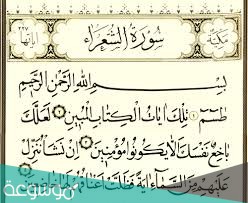 مكية سورة الشعراء آياتها ٢٢٧
بسم الله الرحمن الرحيم
طسم ١ تلك آيات الكتاب المبين ٢ لعلك
باخع نفسك ألا يكونوا مؤمنين ٣ إن نشأ ننزل
عليهم من السماء آية فظلت أعناقهم
موسوعة